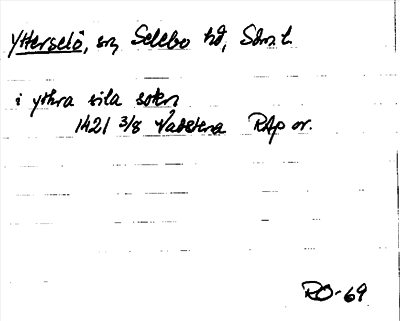 Ytterselö, sn, Selebo hd, Södm. l.
i ythra sila sokn
1421 3/8 Vadstena RAp or.
RO-69